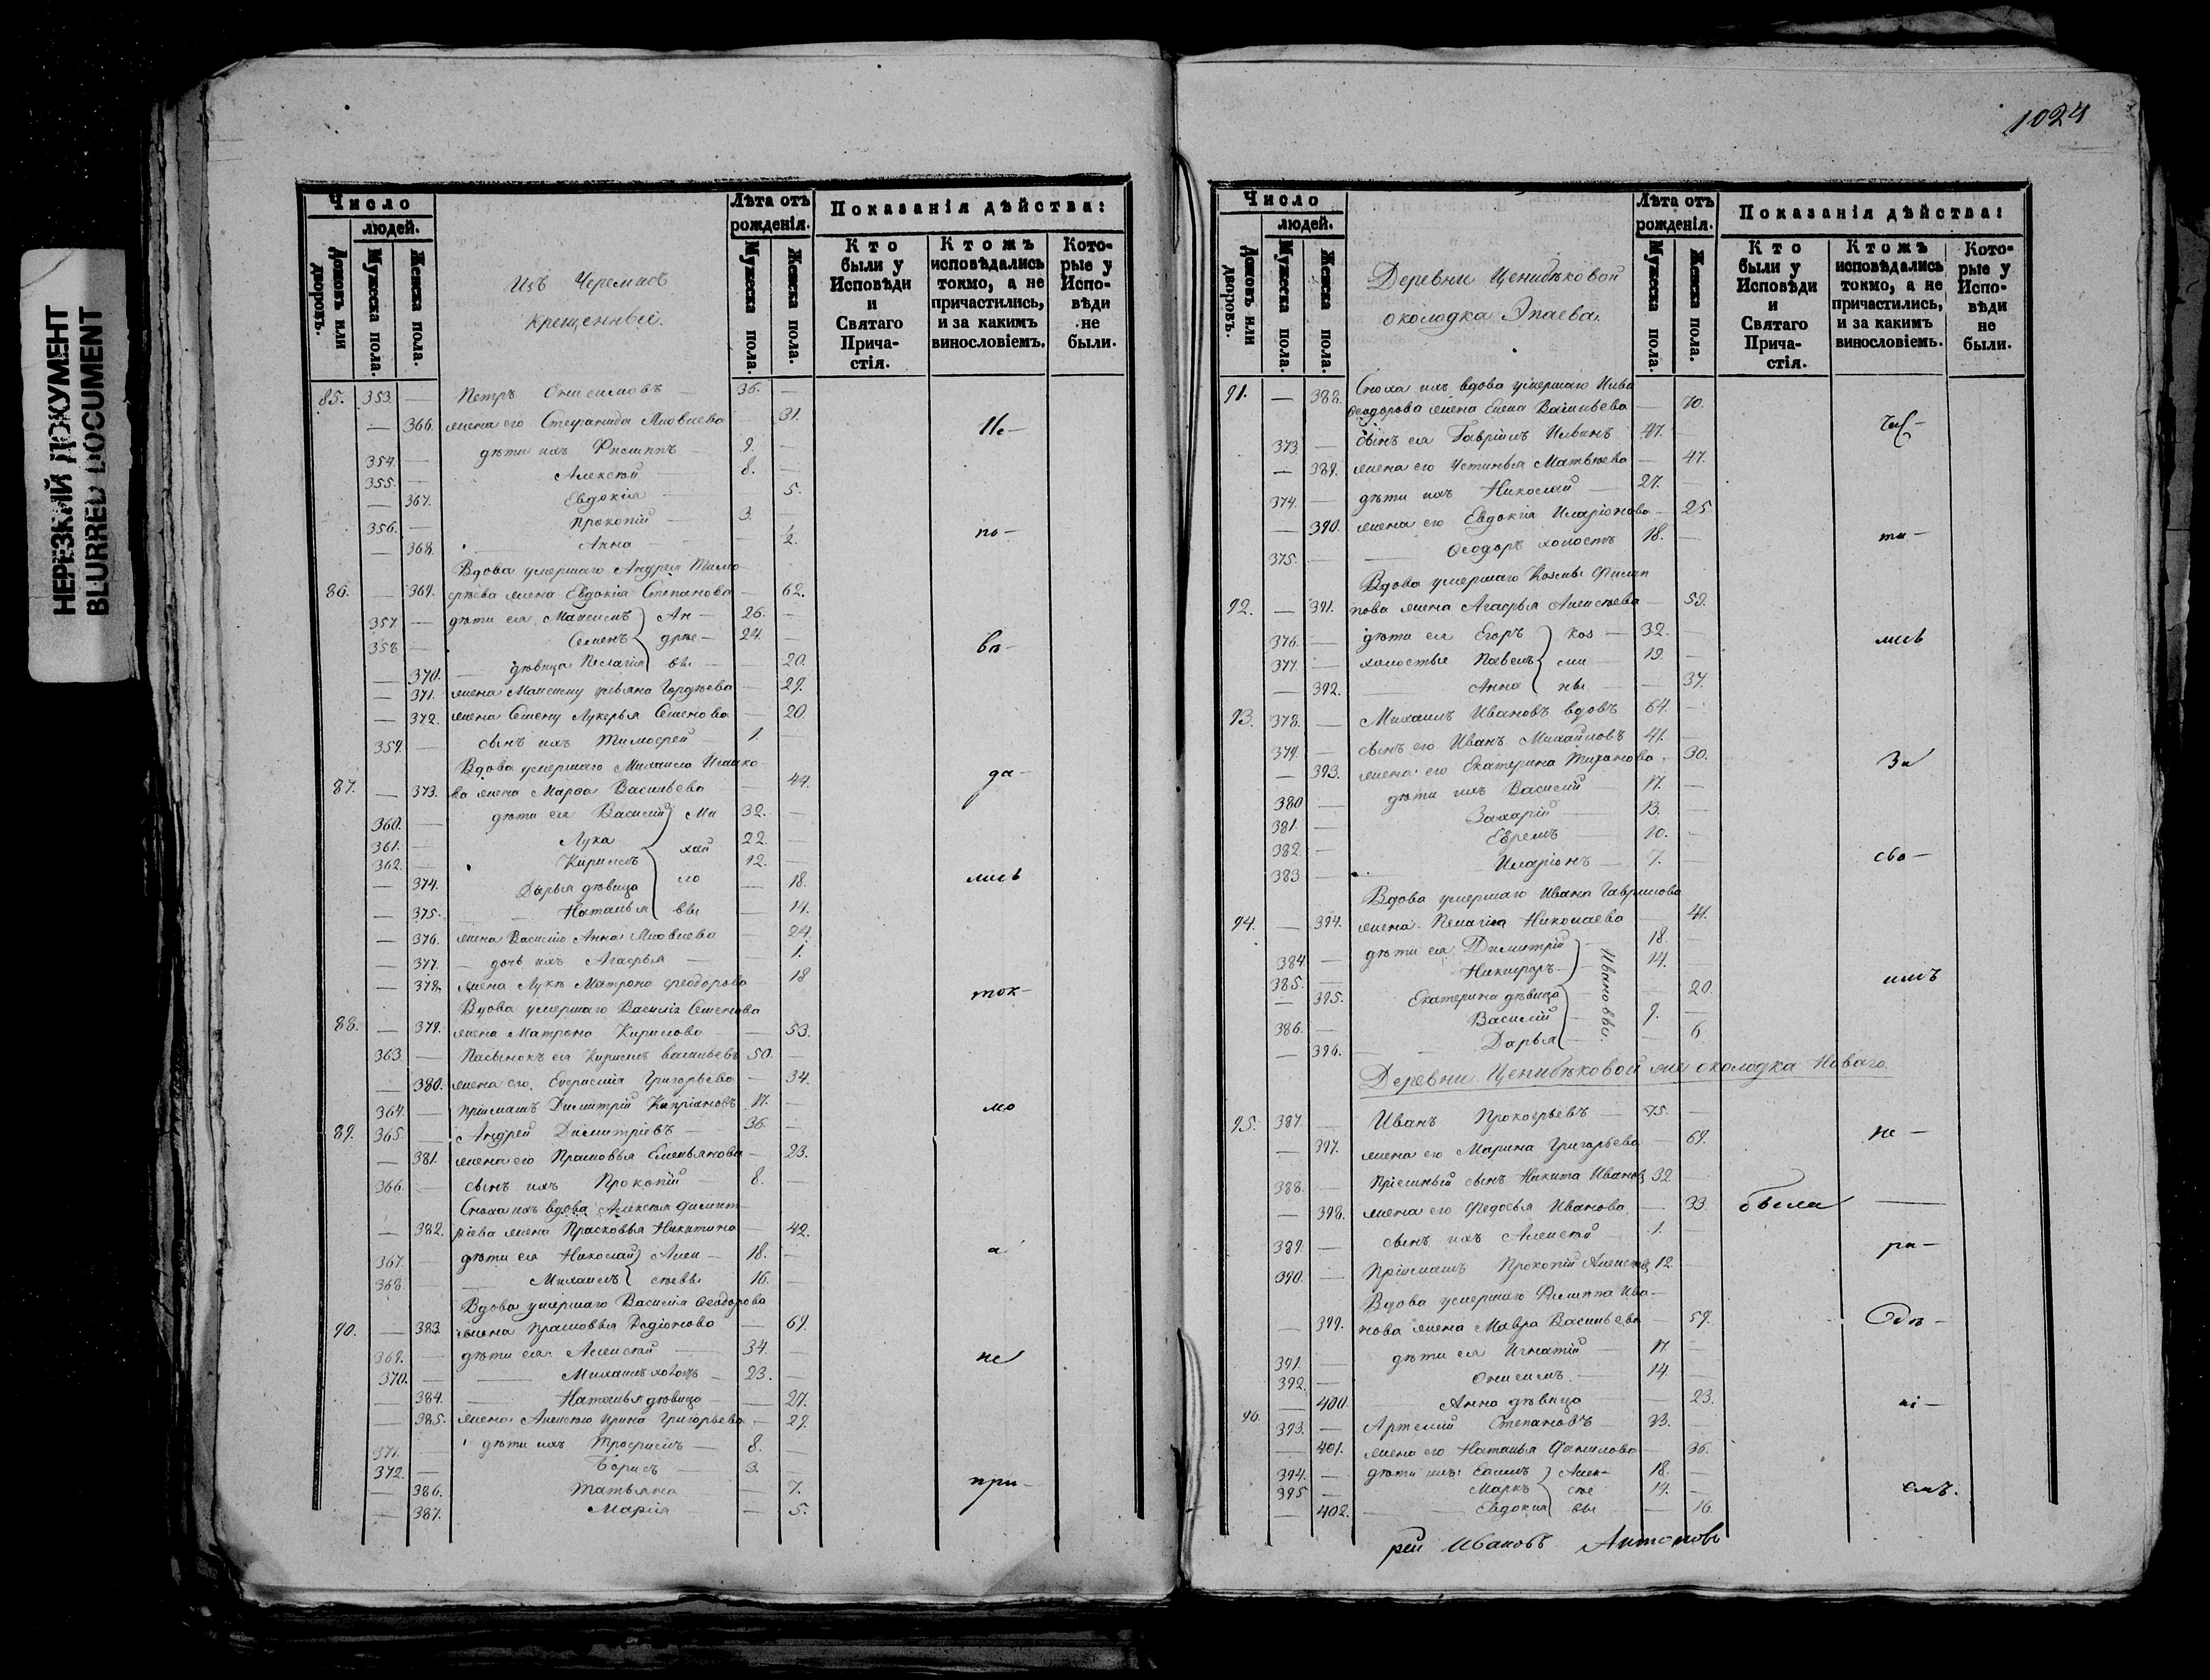 НЕРЕЗКИЙ ДОКУМЕНТ
BLURRED DOCUMENT
Число
людей.
Домовъ или дворовъ.
Мужеска пола.
Женска пола.
Изъ Черемисъ
крещенныхъ.
Лѣта отъ рожденія.
Мужеска пола.
Женска пола.
Показанія дѣйства:
Кто были у Исповѣди и Святаго Причастія.
Ктожъ исповѣдались токмо, а не причастились, и за какимъ винословіемъ.
Которые у Исповѣди не были.
85. 353. — Петръ Онисимовъ 36. —
— 366. жена его Стефанида 31. Ис—
354. — дѣти ихъ Филиппъ — 9.
355. — Алексѣй 8. —
— 367. Евдокія — 5.
356. — Прокопій — 3. —
— 368. Анна — ½. по—
Вдова умершаго Андрея Тимо
86. — 369. фѣева жена Евдокія Степанова — 62.
357 — дѣти ея Максимъ } Ан — 26. —
358 — Семенъ } дрѣе — 24. —
— 370. — дѣвица Пелагія } вы — 20. вѣ—
— 371. жена Максиму Ульяна Гордѣева — 29.
— 372. жена Семену Лукерья Семенова — 20.
359. — сынъ ихъ Тимофей — 1. —
Вдова умершаго Михаила Исаако
87. — 373. ва жена Марѳа Васильева — 44. да—
360. — дѣти ея Василій } Ми 32. —
361. — Лука 22. —
362. — Кирилъ } хай 12. —
— 374. Дарья дѣвица } ло — 18. лись
— 375. Наталья } вы — 14.
— 376. жена Василію Анна — 24
— 377. — дочь ихъ Агафья — 1.
— 378. жена Лукѣ Матрона Феодорова 18 ток—
Вдова умершаго Василія Семенова
88. — 379. жена Матрона Кирилова — 53.
363. — Пасынокъ ея Кирилъ Васильевъ 50. —
— 380. жена его Григорьева — 34.
364. — пріимышъ Димитрій Кипріановъ 17. — мо
89. 365. — Андрей Димитріевъ — 36. —
— 381. жена его Прасковья Емельянова — 23.
366. — сынъ ихъ Прокопій — 8. —
Сноха ихъ вдова Алексѣя Димит
— 382. ріева жена Прасковья Никитина — 42.
367. — дѣти ея Николай } Алек — 18. — а
368 — Михаилъ } сѣевы 16. —
Вдова умершаго Василія Ѳеодорова
90. — 383 жена Прасковья Родіонова — 69.
369. — дѣти ея Алексѣй — 34. — не
370. — Михаилъ холостъ — 23. —
— 384. — Наталья дѣвица 27.
— 385. жена Алексѣю Ирина Григорьева — 29.
371. — дѣти ихъ Трофимъ — 8. —
372. — Борисъ — 3. —
— 386. Татьяна — 7. при—
— 387. Марія — 5.
1024
Число
людей.
Домовъ или дворовъ.
Мужеска пола.
Женска пола.
Деревни Ценибѣковой
околодка Эпаева.
Лѣта отъ рожденія.
Мужеска пола.
Женска пола.
Показанія дѣйства:
Кто были у Исповѣди и Святаго Причастія.
Ктожъ исповѣдались токмо, а не причастились, и за какимъ винословіемъ.
Которые у Исповѣди не были.
91. — 388. Сноха ихъ вдова умершаго Ильи
Ѳеодорова жена Елена Васильева — 70.
373. — сынъ ея Гавріилъ Ильинъ 47. —
— 389. жена его Устинья Матвѣева — 47.
374. — дѣти ихъ Николай — 27. —
— 390. жена его Евдокія Иларіонова — 25
375. — Ѳеодоръ холостъ 18. — ти—
Вдова умершаго Козьмы Филип
92. — 391. пова жена Агафья Алексѣева — 59.
376. — дѣти ея Егоръ } Коз — 32. — лись
377. — холостые Павелъ } ми — 19. —
— 392. Анна } ны — — 37.
93. 378. — Михаилъ Ивановъ вдовъ 64. —
379. — сынъ его Иванъ Михайловъ 41. —
— 393. жена его Екатерина — 30. За
380 — дѣти ихъ Василій — 17. —
381. — Захарій — 13. —
382. — Ефремъ — 10. —
383 — Иларіонъ — 7. — сво—
Вдова умершаго Ивана Гаврилова
94. — 394. жена Пелагія Николаева — 41.
384 — дѣти ея Димитрій — 18. —
385. — Никифоръ — 14. —
— 395. Екатерина дѣвица — 20. имъ
386. — Василій — 9. —
— 396. Дарья — 6
Ивановы.
Деревни Ценибѣковой же околодка Новаго
95. 387. — Иванъ Прокофьевъ — 75. —
— 397. жена его Марина Григорьева — 69. не—
388. — Пріемный сынъ Никита Ивановъ 32 —
— 398. жена его Федосья Иванова — 33. была —
389. — сынъ ихъ Алексѣй — 1. —
390. — Пріимышъ Прокопій Алексѣевъ 12 — ра—
Вдова умершаго Филиппа Ива—
— 399. нова жена Мавра Васильева — 59.
391. — дѣти ея Игнатій — 17. —
392. — Онисимъ. — 14. —
— 400. Анна дѣвица — 23. ні—
96. 393. — Артемій Степановъ — 33. —
— 401. жена его Наталья Данилова — 36.
394. — дѣти ихъ } Алек— 18. —
395 — Маркъ } сѣе 14. — емъ.
— 402. — Евдокія } вы — 16.
рей Ивановъ Антоновъ